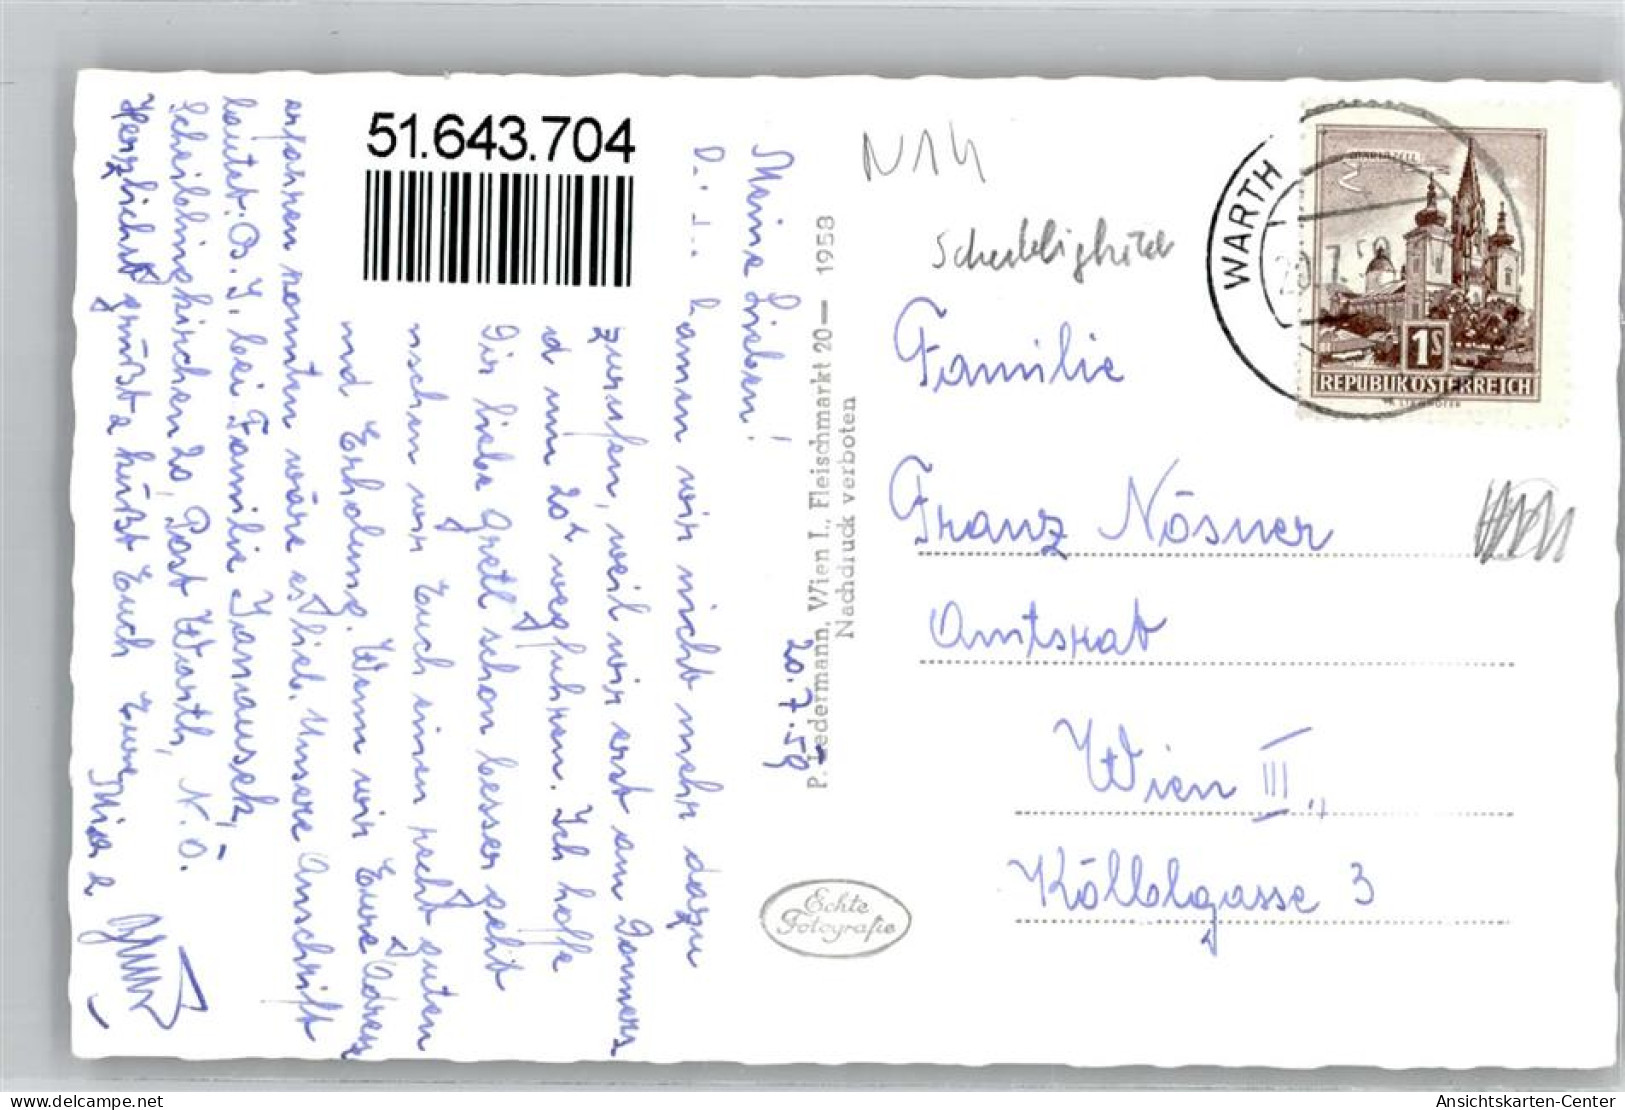 51.643.704
20.7.59
Meine Lieben!
kamen wir nicht mehr dazu
zurufen, weil wir erst am Donners
d um 20h wegfuhren. Ich hoffe
Dir liebe Gretl schon besser geht
nschen wir Euch einen recht guten
nd Erholung. Wenn wir Eure Adresse
erfahren konnten wäre es lieb. Unsere Anschrift
lautet: B. J. bei Familie Janausek,
Scheiblingkirchen 20, Post Warth, N.Ö.
Herzlichst grüßt u küßt Euch Eure
P. Ledermann, Wien I., Fleischmarkt 20 — 1958
Nachdruck verboten
Echte
Fotografie
N14
WARTH
20.7.59
MARIAZELL
1S
REPUBLIK ÖSTERREICH
Familie
Franz Nösner
Amtsrat
Wien III.,
Kölblgasse 3
oldthing.com
Ansichtskarten-Center